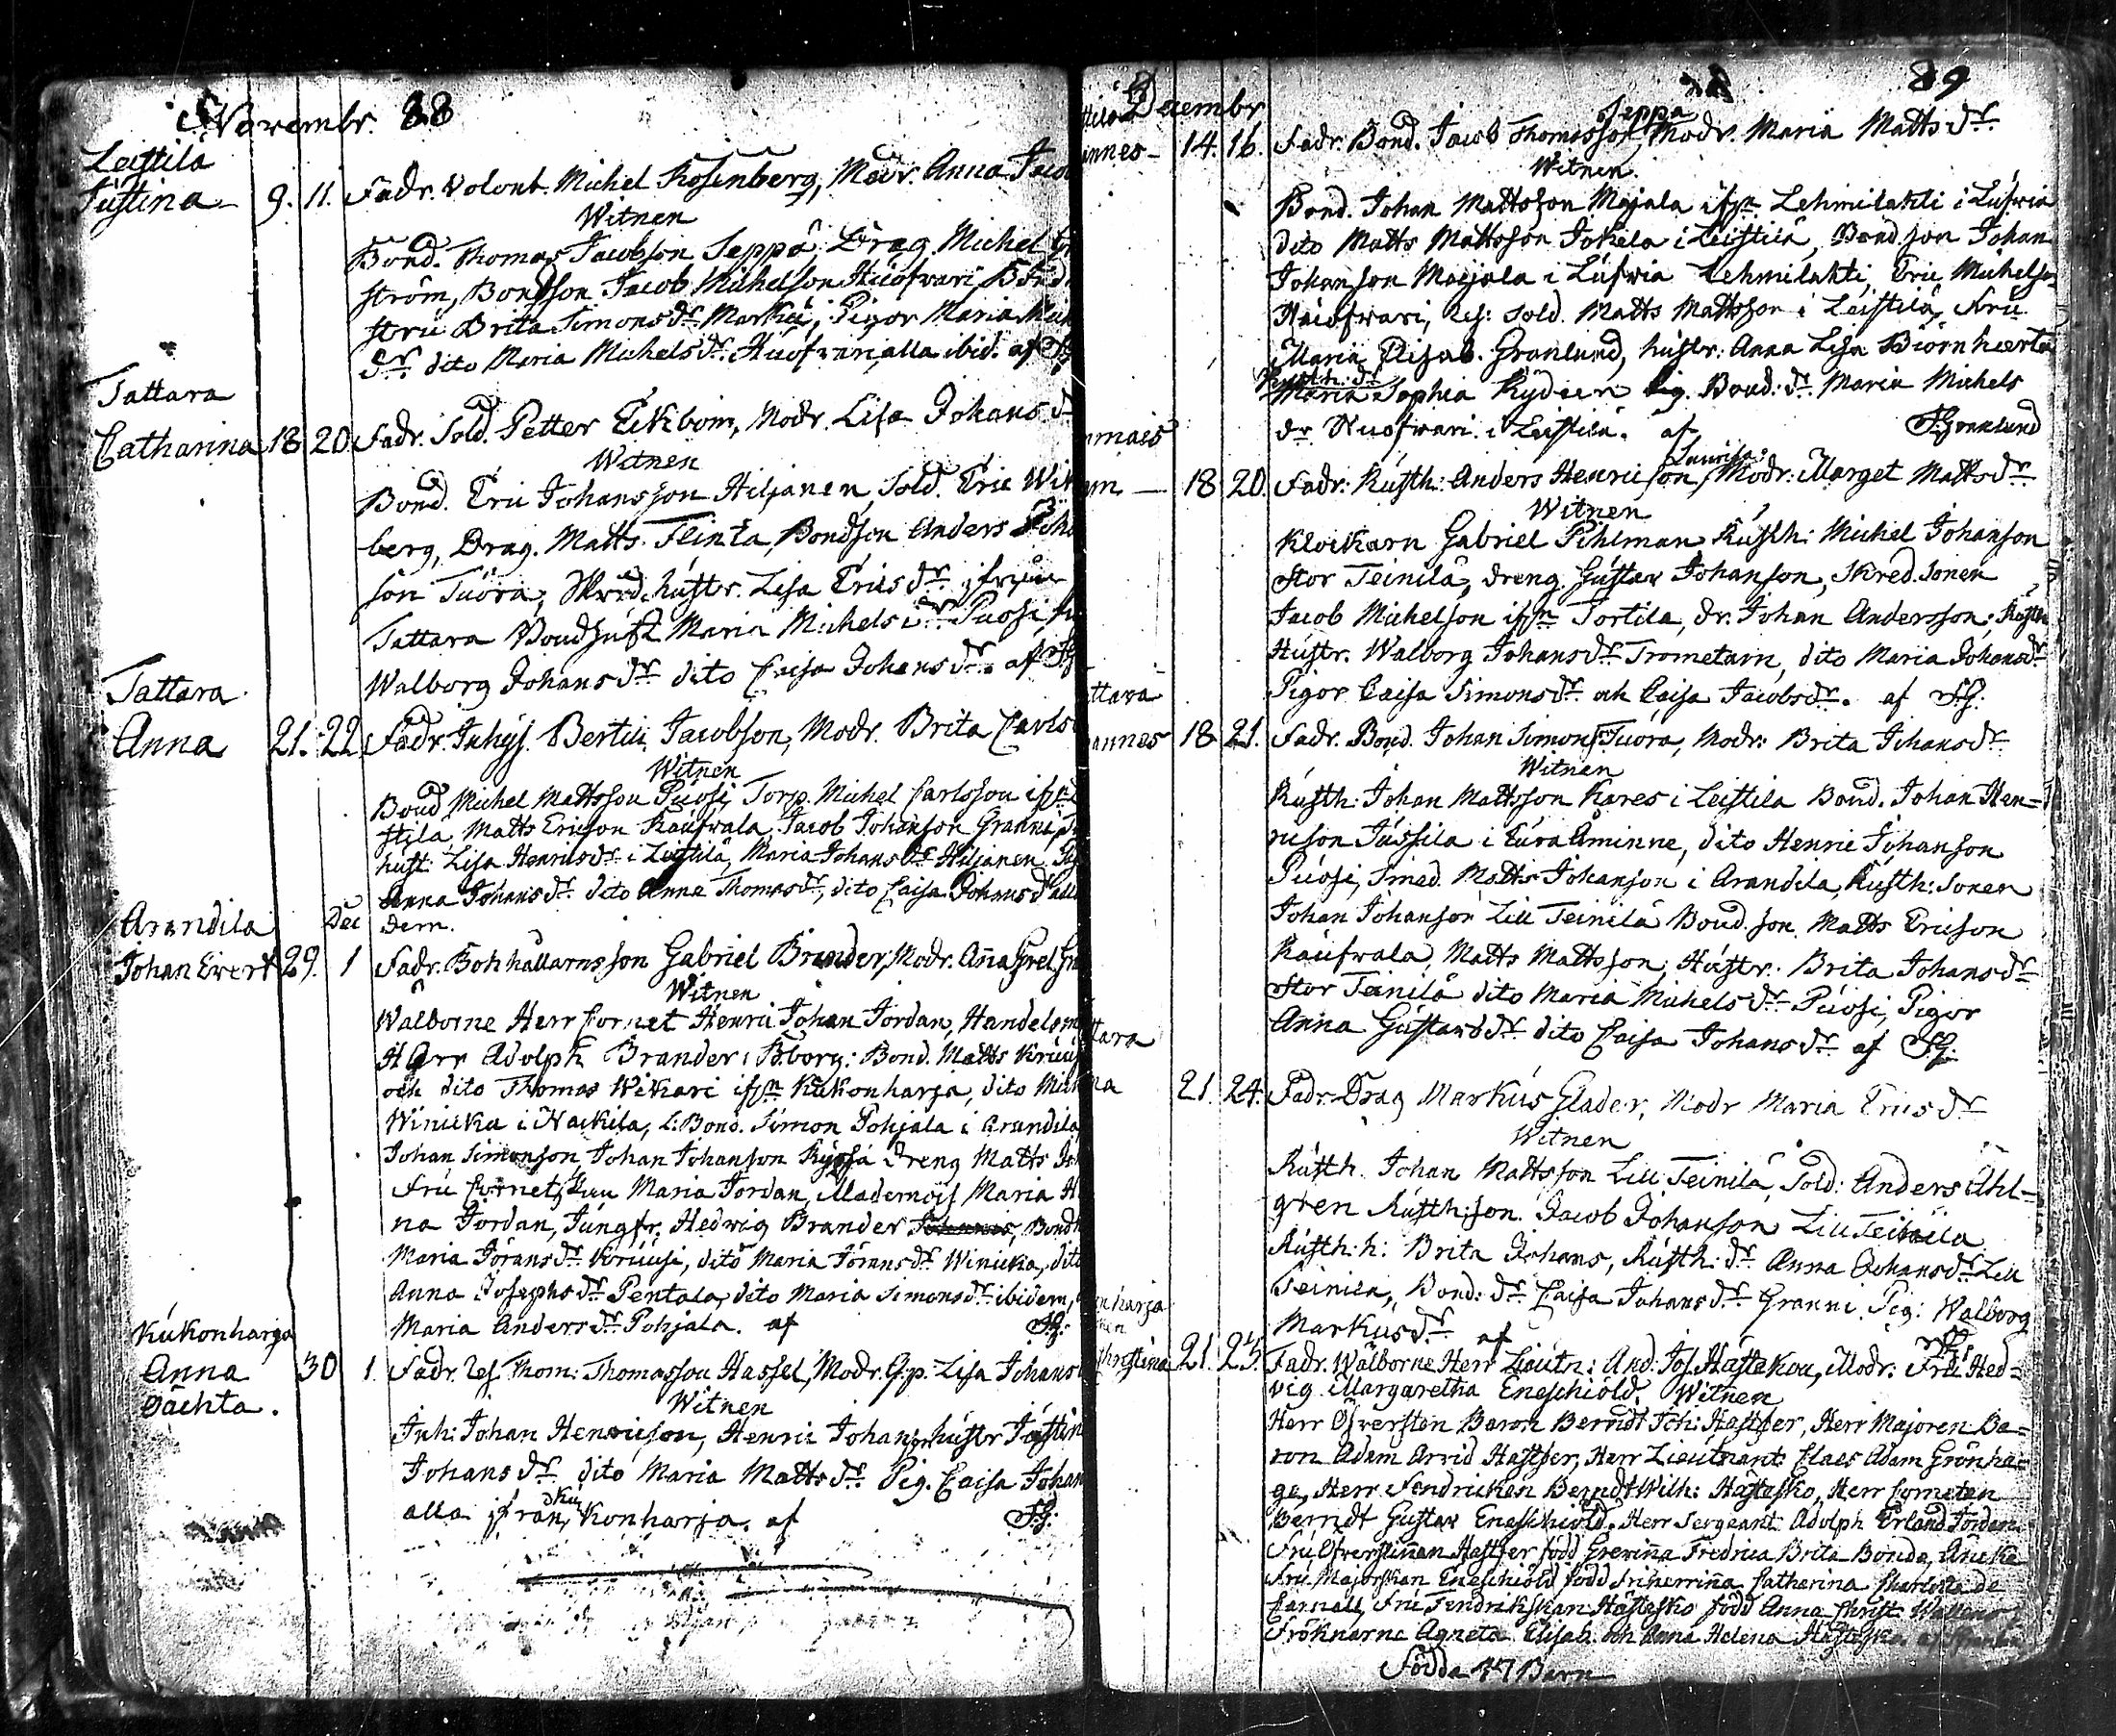 Novembr. 88
Leistilä
Justina 9. 11. Fadr. Volont. Michel Rosenberg, Modr. Anna Jaco
Witnen
Bond. Thomas Jacobson Seppä, Drag. Michel
ström, Bondson Jacob Michelson Huofvari, Bond
stru Brita Simonsdr Markù, Pigor Maria
dr. dito Maria Michelsdr. Huofvari, alla ibid. af
Tattara
Catharina 18 20. Fadr. Sold. Petter Ekbom, Modr. Lisa Johansd
Witnen
Bond. Eric Johansson Hiljanen, Sold. Eric Wik
berg, Drag. Matts Flinta, Bondson Anders Joha
son Tuora, Skred. hustr. Lisa Ericsdr ifrån
Tattara Maria Michelsdr Puosi,
Walborg Johansdr dito Caisa Johansdr. af
Tattara
Anna 21. 22. Fadr. Inhys. Bertil Jacobson, Modr. Brita Carls
Witnen
Bond Michel Mattsson Puosi, Torp. Michel Carlsson ifrn
stila, Matts Ericson Kaufwala, Jacob Johanson Granni,
hust. Lisa Henricsdr i Leistilä, Maria Johansdr Hiljanen
Anna Johansdr. dito Anna Thomasdr, dito Caisa Johansd
Arandila Dec dem.
Johan Evert 29. 1 Fadr. Bokhållarns son Gabriel Brander, Modr. Anna Gret
Witnen
Walborne Herr Cornet Henric Johan Jordan, Handelsm
Herr Adolph Brander i Bborg: Bond. Matts
och dito Thomas Wikari ifrn Kukonharja, dito Mich
Winikka i Nackila, L: Bond. Simon Pohjala i Arandila
Johan Simonson, Johan Johanson dreng Matts
Fru Cornetskan Maria Jordan, Mademois Maria
na Jordan, Jungfr. Hedwig Brander, Bond
Maria Jöransdr Kruusi, dito Maria Jöransdr Winikka, dito
Anna Josephsdr Pentala, dito Maria Simonsdr ibidem,
Maria Andersdr Pohjala. af
Kukonharja
Anna 30 1. Fadr. Thom: Thomasson Hassel, Modr. Lisa Johans
oäckta. Witnen
Inh: Johan Henricson, Henric Johanson hustr Justin
Johansdr. dito Maria Mattsdr. Pig. Caisa Johan
alla ifrån Kukonharja. af
Decembr 89
annes 14. 16. Fadr. Bond. Jacob Thomasson Seppä, Modr. Maria Mattsdr.
Witnen
Bond. Johan Mattsson Majala ifrn Lehmilahti i Lufwia
dito Matts Mattsson Jokela i Leistilä, Bond. son Johan
Johanson Maijala i Lufwia Lehmilahti, Eric Michelson
Huofwari, Res: Sold. Matts Mattsson i Leistilä, Fru
Maria Elisab. Granlund, hustr: Anna Lisa Biörnhierta
Maria Sophia Bond: dr. Maria Michels
dr Huofwari i Leistilä. af Granlund
18 20. Fadr: Rusth: Anders Henricson Laurila, Modr: Marget Mattsdr
Witnen
Klockarn Gabriel Pihlman Rusth: Michel Johanson
Stor Teinilä, dreng. Gustav Johanson, Skred. Sonen
Jacob Michelson ifrn Tortila, dr. Johan Andersson, Rusth
Hustr. Walborg Johansdr Trometarn, dito Maria Johansdr
Pigor Caisa Simonsdr och Caisa Jacobsdr. af
ttara
annes 18 21. Fadr. Bond. Johan Simons Tuora, Modr: Brita Johansdr
Witnen
Rusth: Johan Mattsson Kares i Leistila Bond. Johan Hen-
ricson Jussila i Eura Åminne, dito Henric Johanson
Puosi, Smed. Matts Johanson i Arandila, Rusth: Sonen
Johan Johanson Lill Teinilä Bond. son Matts Ericson
Kaufwala, Matts Mattsson, Hustr: Brita Johansdr
Stor Teinilä dito Maria Michelsdr Puosi, Pigor
Anna Gustavsdr dito Caisa Johansdr af
tara
na 21. 24. Fadr. Drag Markus Glader, Modr Maria Ericsdr
Witnen
Rusth. Johan Mattsson Lill Teinilä, Sold: Anders Ahl-
gren Rusth: son. Jacob Johanson Lill Teinila
Rusth: h: Brita Johans, Rusth: dr Anna Johansdr Lill
Teinila, Bond: dr Caisa Johansdr Granni Pig: Walborg
Markusdr. af
Christina 21. 25. Fadr. Wälborne Herr Lieutn: And: Joh. Hästskou, Modr: Fru Hed-
vig Margaretha Eneschiöld. Witnen
Herr Öfversten Baron Berndt Joh: Hastfer, Herr Majoren Ba-
ron Adam Arvid Hastfer, Herr Lieutnant Claes Adam Grönha-
ge, Herr Fendricken Berndt Wilh: Hästesko, Herr Corneten
Berndt Gustav Eneschiöld, Herr Sergeant Adolph Erland Jordan
Fru Öfverstinnan Hastfer född Grevinna Fredrica Brita Bonde, Aneka
Fru Majorskan Eneschiöld född friherrinna Catharina Charlotta de
Carnall, Fru Fendrikskan Hästesko född Anna Christ.
Fröknarna Agneta Elisab. och Anna Helena Hästesko.
Födde 37 Barn